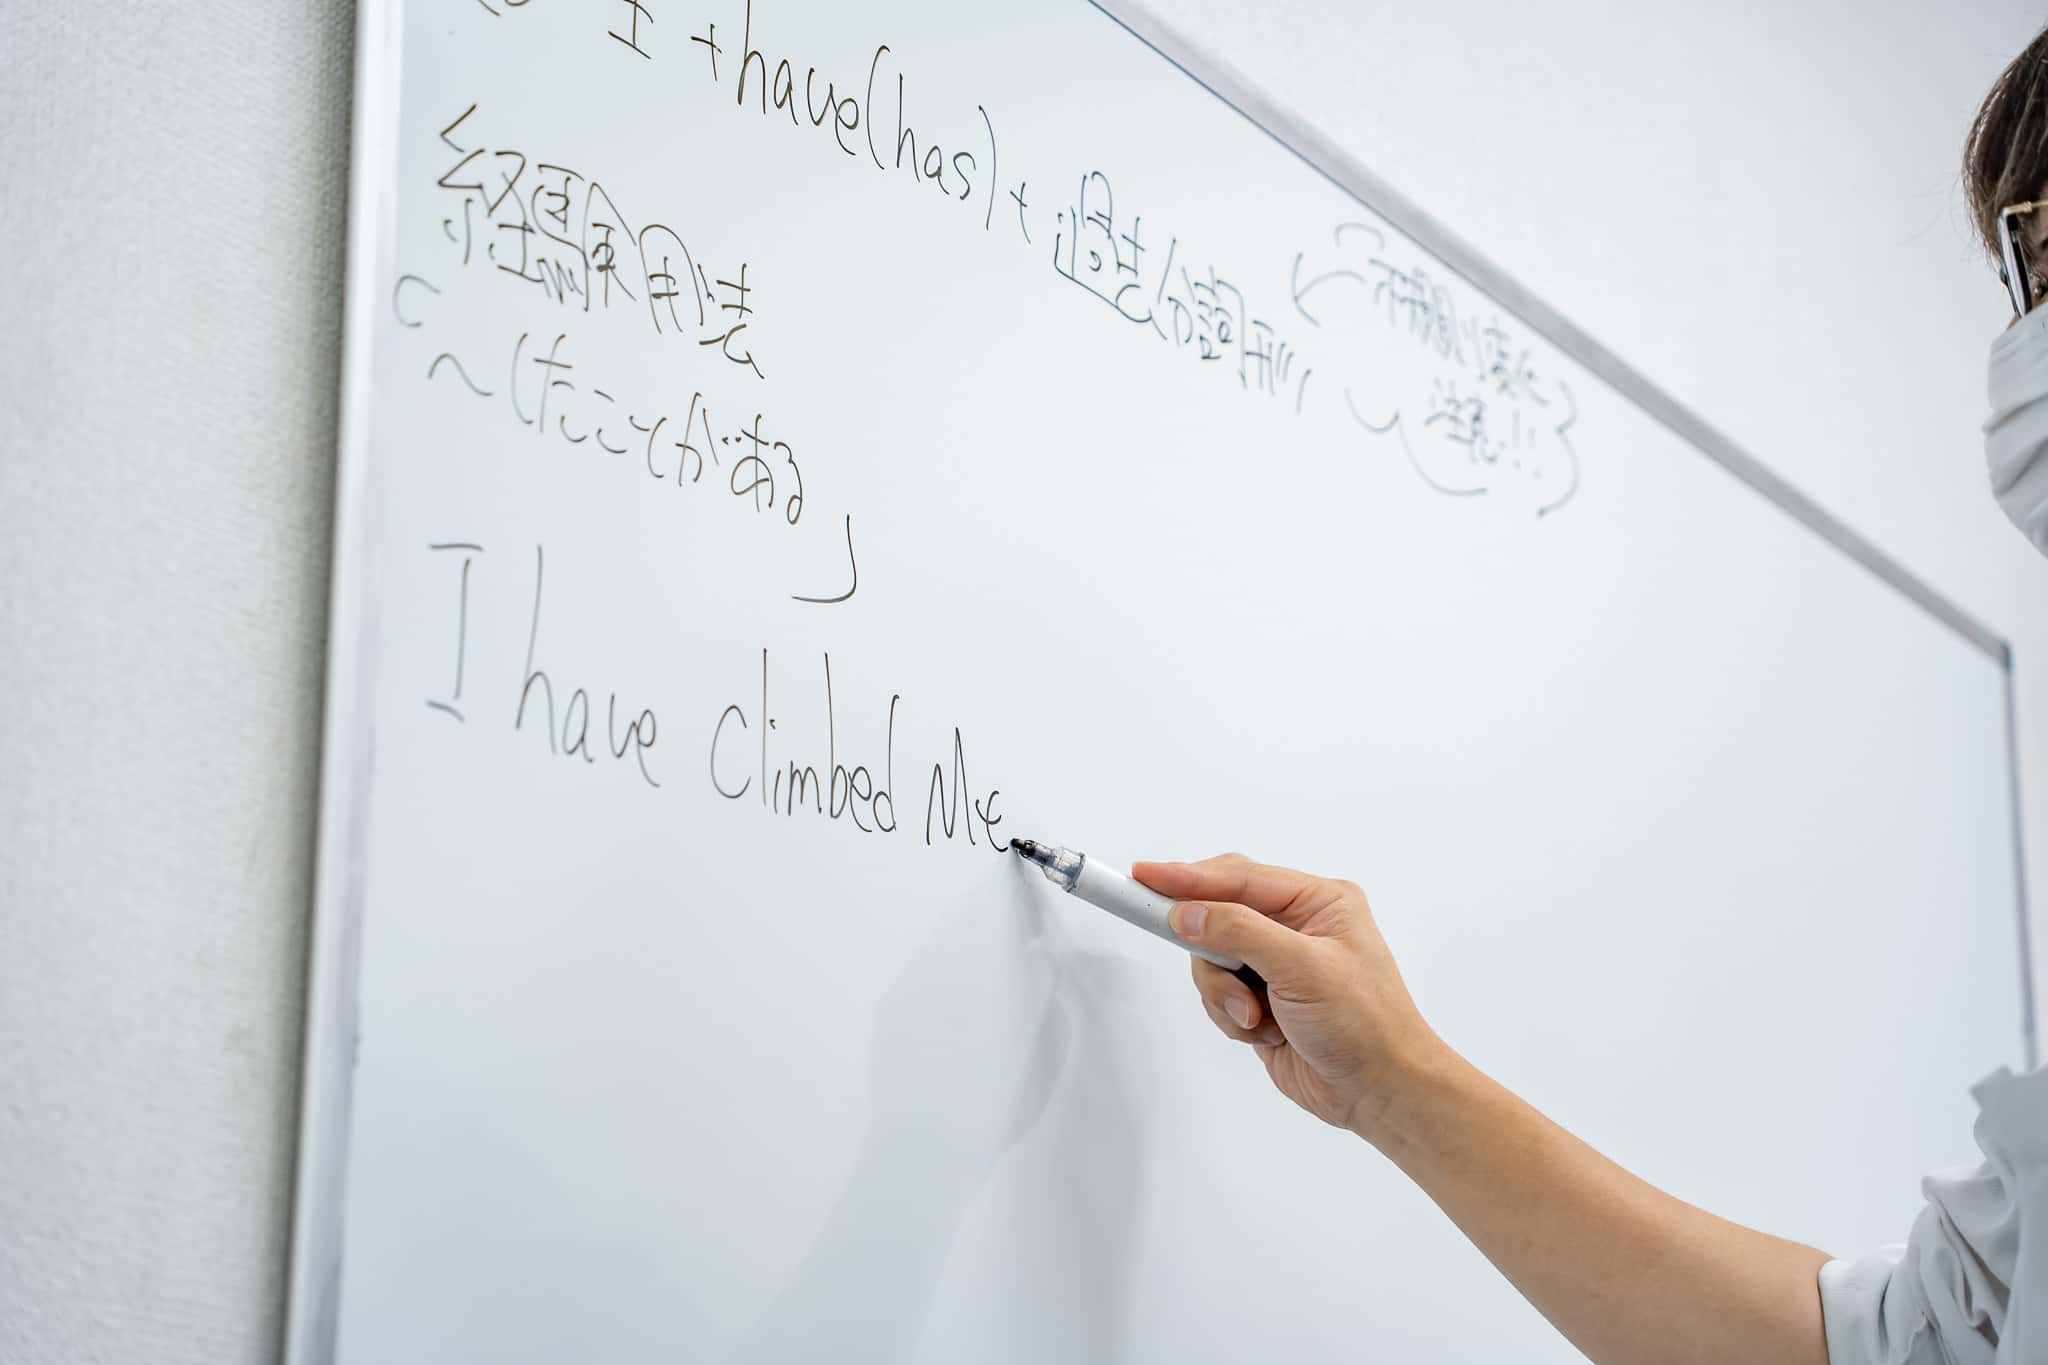 I + have(has) + 過去分詞形
不規則変化
注意!!
経験用法
「~したことがある」
I have climbed Mt